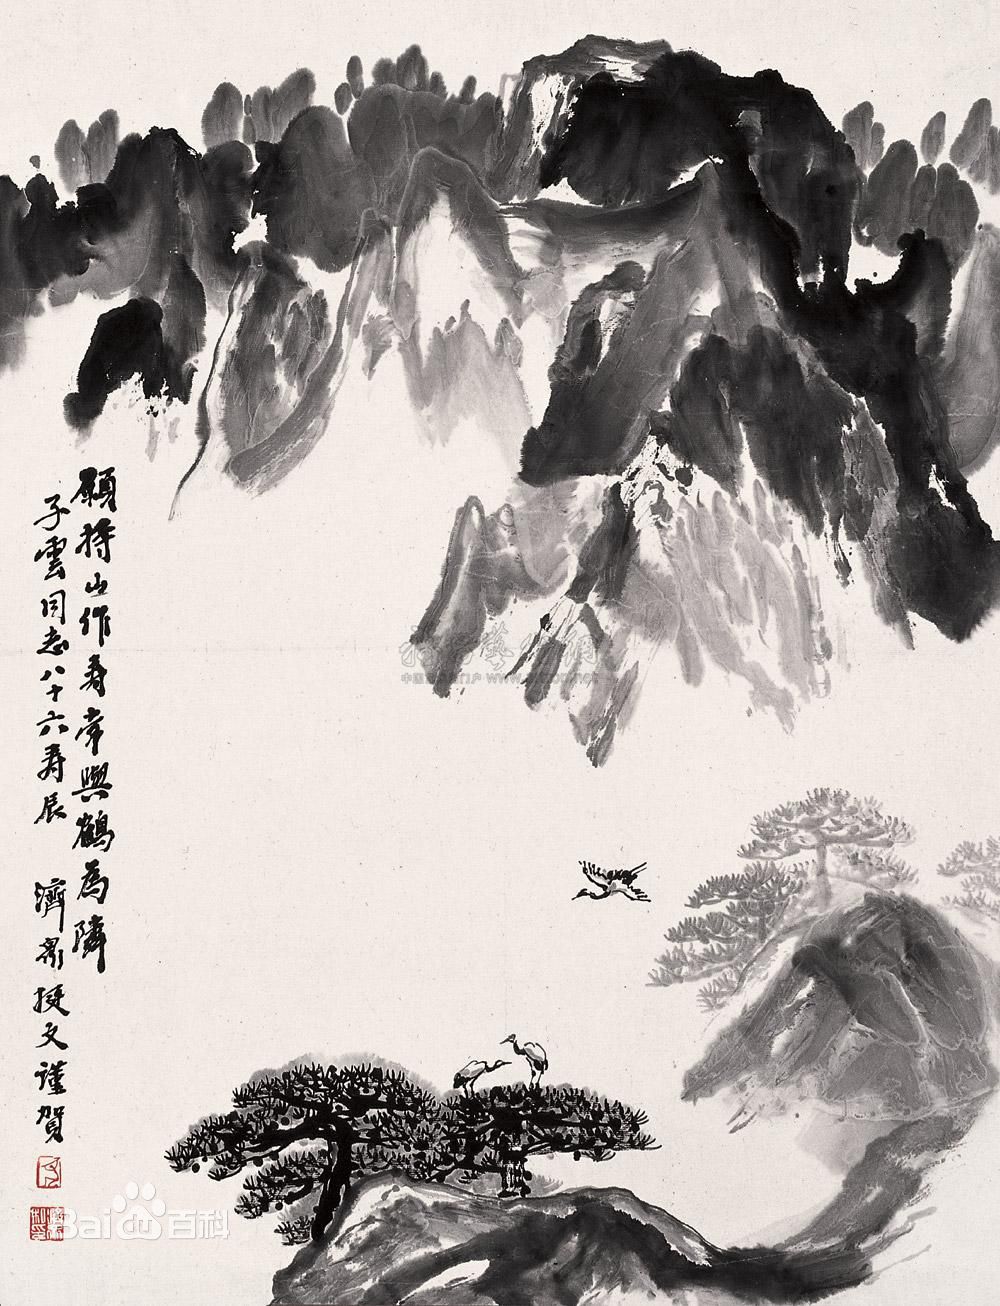 願持山作壽常與鶴為隣
子雲同志八十六壽辰
濟眾挺文謹賀
Bai 百科